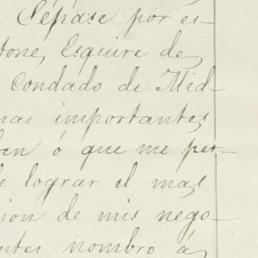 Sépase por es-
tone, Esquire de
Condado de Mid-
mas importantes
ben ó que me per-
e lograr el mas
ion de mis nego-
ntes nombro á